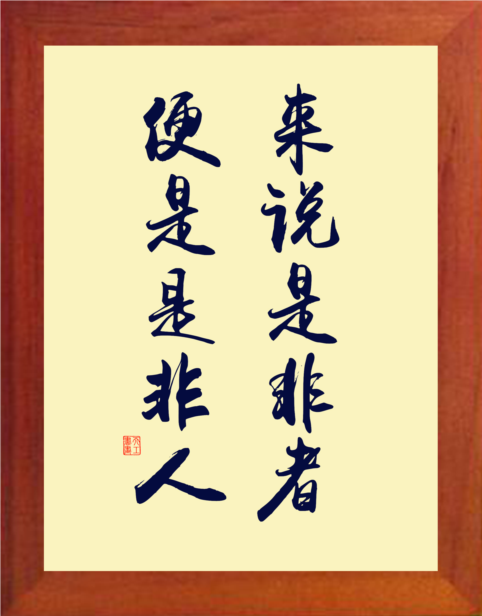 来说是非者
便是是非人